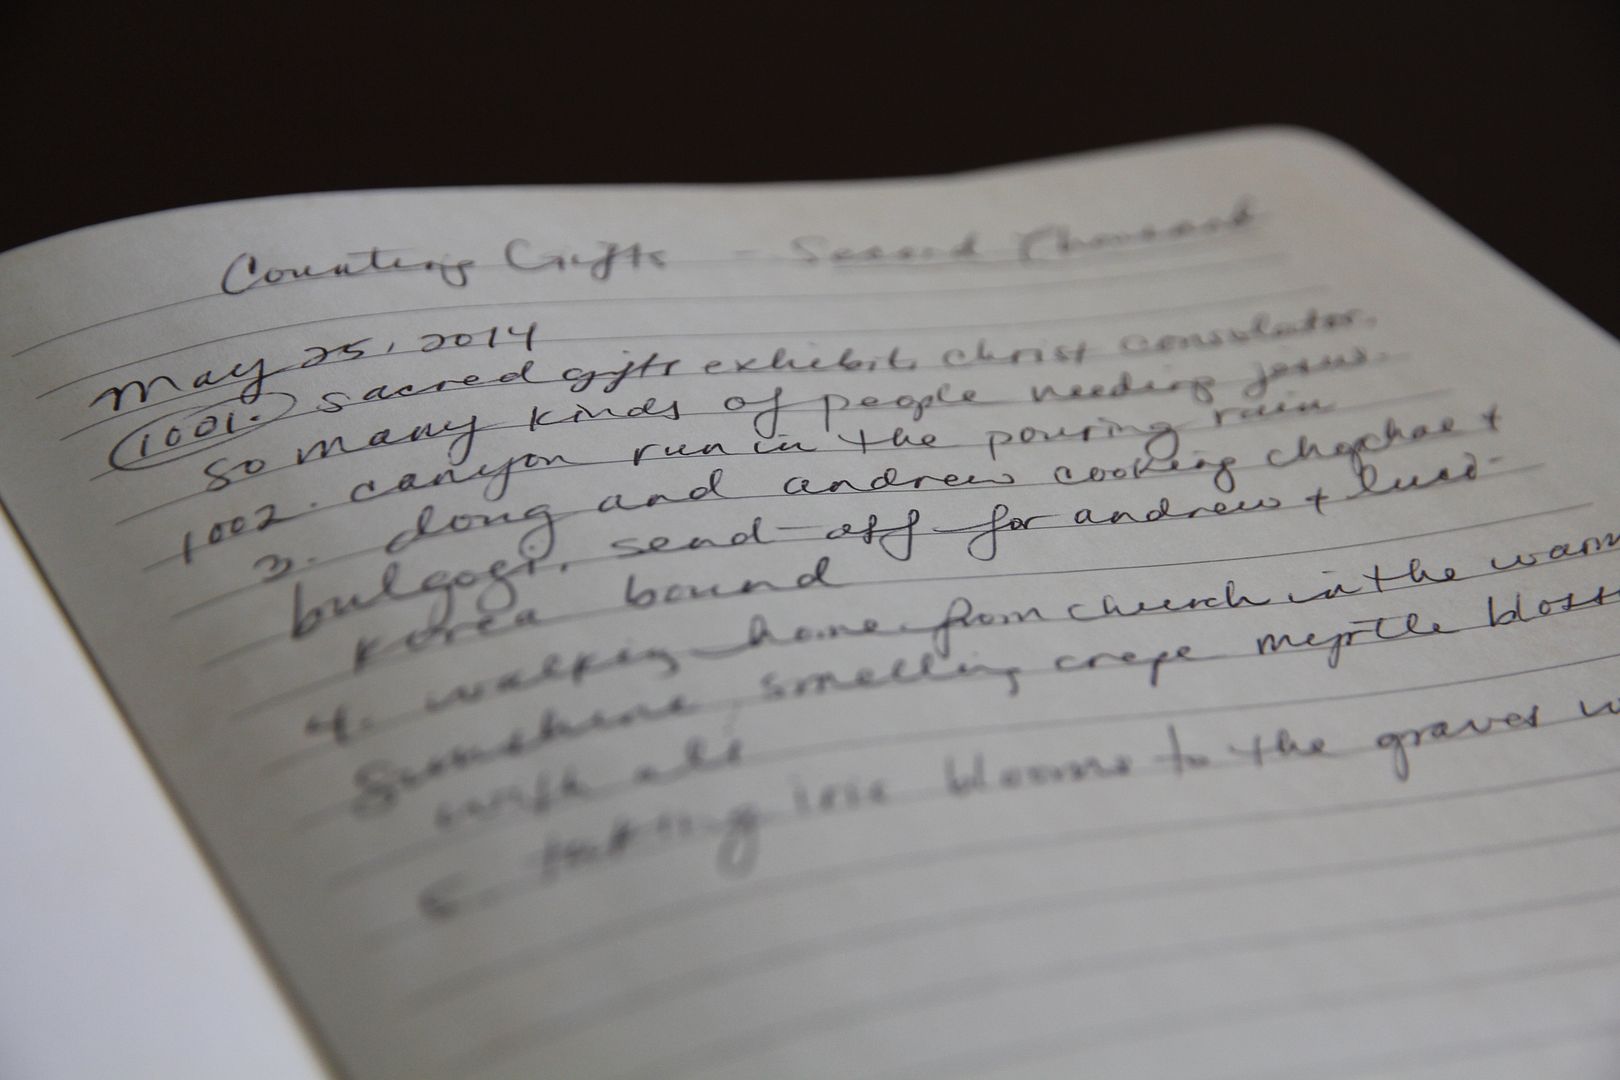 Counting Gifts - Second Thousand
May 25, 2014
1001. sacred gifts exhibit. christ consolator.
so many kinds of people needing jesus.
1002. canyon run in the pouring rain
3. dong and andrew cooking chapchae +
bulgogi. send-off for andrew + luci-
korea bound
4. walking home from church in the warm
sunshine, smelling crepe myrtle
with ali
5. taking blooms to the graves